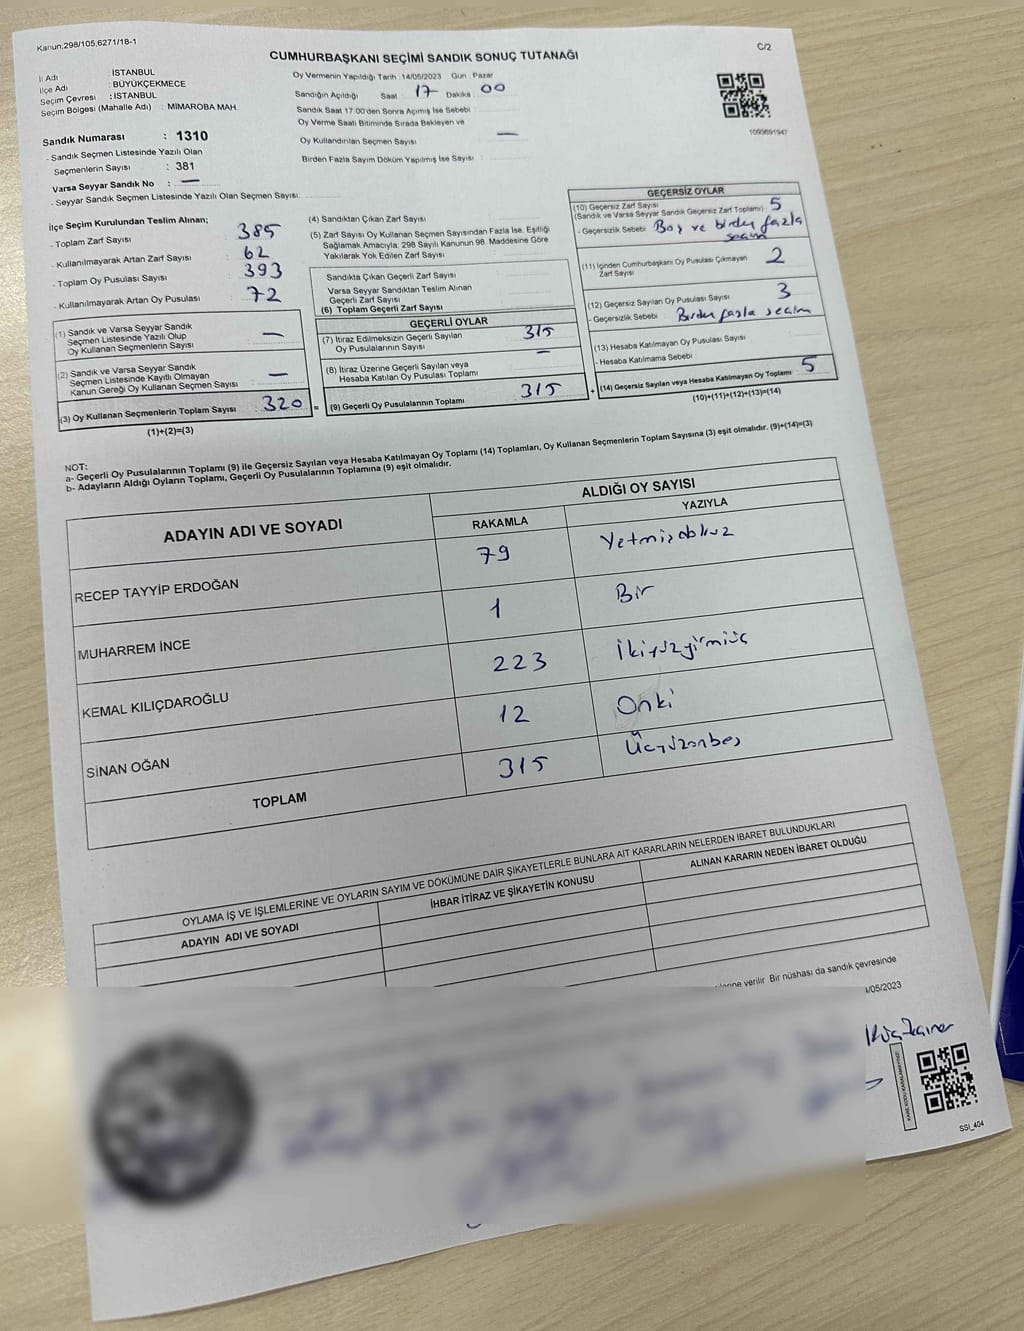 Kanun,298/105,6271/18-1
C/2
CUMHURBAŞKANI SEÇİMİ SANDIK SONUÇ TUTANAĞI
İl Adı : İSTANBUL
İlçe Adı : BÜYÜKÇEKMECE
Seçim Çevresi : İSTANBUL
Seçim Bölgesi (Mahalle Adı) : MİMAROBA MAH.
Oy Vermenin Yapıldığı Tarih :14/05/2023 Gün : Pazar
Sandığın Açıldığı Saat : 17 Dakika : 00
Sandık Saat 17:00'den Sonra Açımış İse Sebebi :
Oy Verme Saati Bitiminde Sırada Bekleyen ve
Oy Kullandırılan Seçmen Sayısı : —
Birden Fazla Sayım Döküm Yapılmış İse Sayısı :
1093691947
Sandık Numarası : 1310
- Sandık Seçmen Listesinde Yazılı Olan
Seçmenlerin Sayısı : 381
Varsa Seyyar Sandık No : —
- Seyyar Sandık Seçmen Listesinde Yazılı Olan Seçmen Sayısı:
İlçe Seçim Kurulundan Teslim Alınan;
- Toplam Zarf Sayısı : 385
- Kullanılmayarak Artan Zarf Sayısı : 62
- Toplam Oy Pusulası Sayısı : 393
- Kullanılmayarak Artan Oy Pusulası : 72
(1) Sandık ve Varsa Seyyar Sandık
Seçmen Listesinde Yazılı Olup
Oy Kullanan Seçmenlerin Sayısı : —
(2) Sandık ve Varsa Seyyar Sandık
Seçmen Listesinde Kayıtlı Olmayan
Kanun Gereği Oy Kullanan Seçmen Sayısı : —
(3) Oy Kullanan Seçmenlerin Toplam Sayısı : 320 =
(1)+(2)=(3)
(4) Sandıktan Çıkan Zarf Sayısı :
(5) Zarf Sayısı Oy Kullanan Seçmen Sayısından Fazla İse, Eşitliği
Sağlamak Amacıyla, 298 Sayılı Kanunun 98. Maddesine Göre
Yakılarak Yok Edilen Zarf Sayısı :
Sandıkta Çıkan Geçerli Zarf Sayısı
Varsa Seyyar Sandıktan Teslim Alınan
Geçerli Zarf Sayısı
(6) Toplam Geçerli Zarf Sayısı
GEÇERLİ OYLAR
(7) İtiraz Edilmeksizin Geçerli Sayılan
Oy Pusulalarının Sayısı : 315
(8) İtiraz Üzerine Geçerli Sayılan veya
Hesaba Katılan Oy Pusulası Toplamı : —
(9) Geçerli Oy Pusulalarının Toplamı : 315 +
GEÇERSİZ OYLAR
(10) Geçersiz Zarf Sayısı
(Sandık ve Varsa Seyyar Sandık Geçersiz Zarf Toplamı) : 5
- Geçersizlik Sebebi : Boş ve birden fazla
seçim
(11) İçinden Cumhurbaşkanı Oy Pusulası Çıkmayan
Zarf Sayısı : 2
(12) Geçersiz Sayılan Oy Pusulası Sayısı : 3
- Geçersizlik Sebebi : Birden fazla seçim
(13) Hesaba Katılmayan Oy Pusulası Sayısı :
- Hesaba Katılmama Sebebi :
(14) Geçersiz Sayılan veya Hesaba Katılmayan Oy Toplamı : 5
(10)+(11)+(12)+(13)=(14)
NOT:
a- Geçerli Oy Pusulalarının Toplamı (9) ile Geçersiz Sayılan veya Hesaba Katılmayan Oy Toplamı (14) Toplamları, Oy Kullanan Seçmenlerin Toplam Sayısına (3) eşit olmalıdır. (9)+(14)=(3)
b- Adayların Aldığı Oyların Toplamı, Geçerli Oy Pusulalarının Toplamına (9) eşit olmalıdır.
ADAYIN ADI VE SOYADI
ALDIĞI OY SAYISI
RAKAMLA YAZIYLA
RECEP TAYYİP ERDOĞAN 79 Yetmişdokuz
MUHARREM İNCE 1 Bir
KEMAL KILIÇDAROĞLU 223 İkiyüzyirmiüç
SİNAN OĞAN 12 Oniki
TOPLAM 315 Üçyüzonbeş
OYLAMA İŞ VE İŞLEMLERİNE VE OYLARIN SAYIM VE DÖKÜMÜNE DAİR ŞİKAYETLERLE BUNLARA AİT KARARLARIN NELERDEN İBARET BULUNDUKLARI
ADAYIN ADI VE SOYADI İHBAR İTİRAZ VE ŞİKAYETİN KONUSU ALINAN KARARIN NEDEN İBARET OLDUĞU
verilir. Bir nüshası da sandık çevresinde
/05/2023
SSİ_404